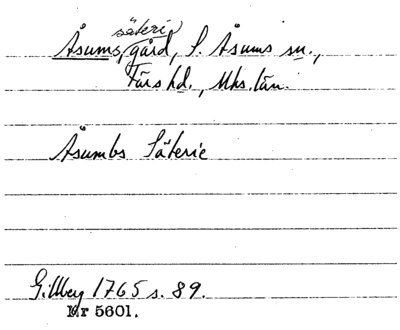 säteri
Åsumsgård, S. Åsums sn.,
Färs hd., Mhs. län.
Åsumbs Säterie
Gillberg 1765 s. 89.
Nr 5601.